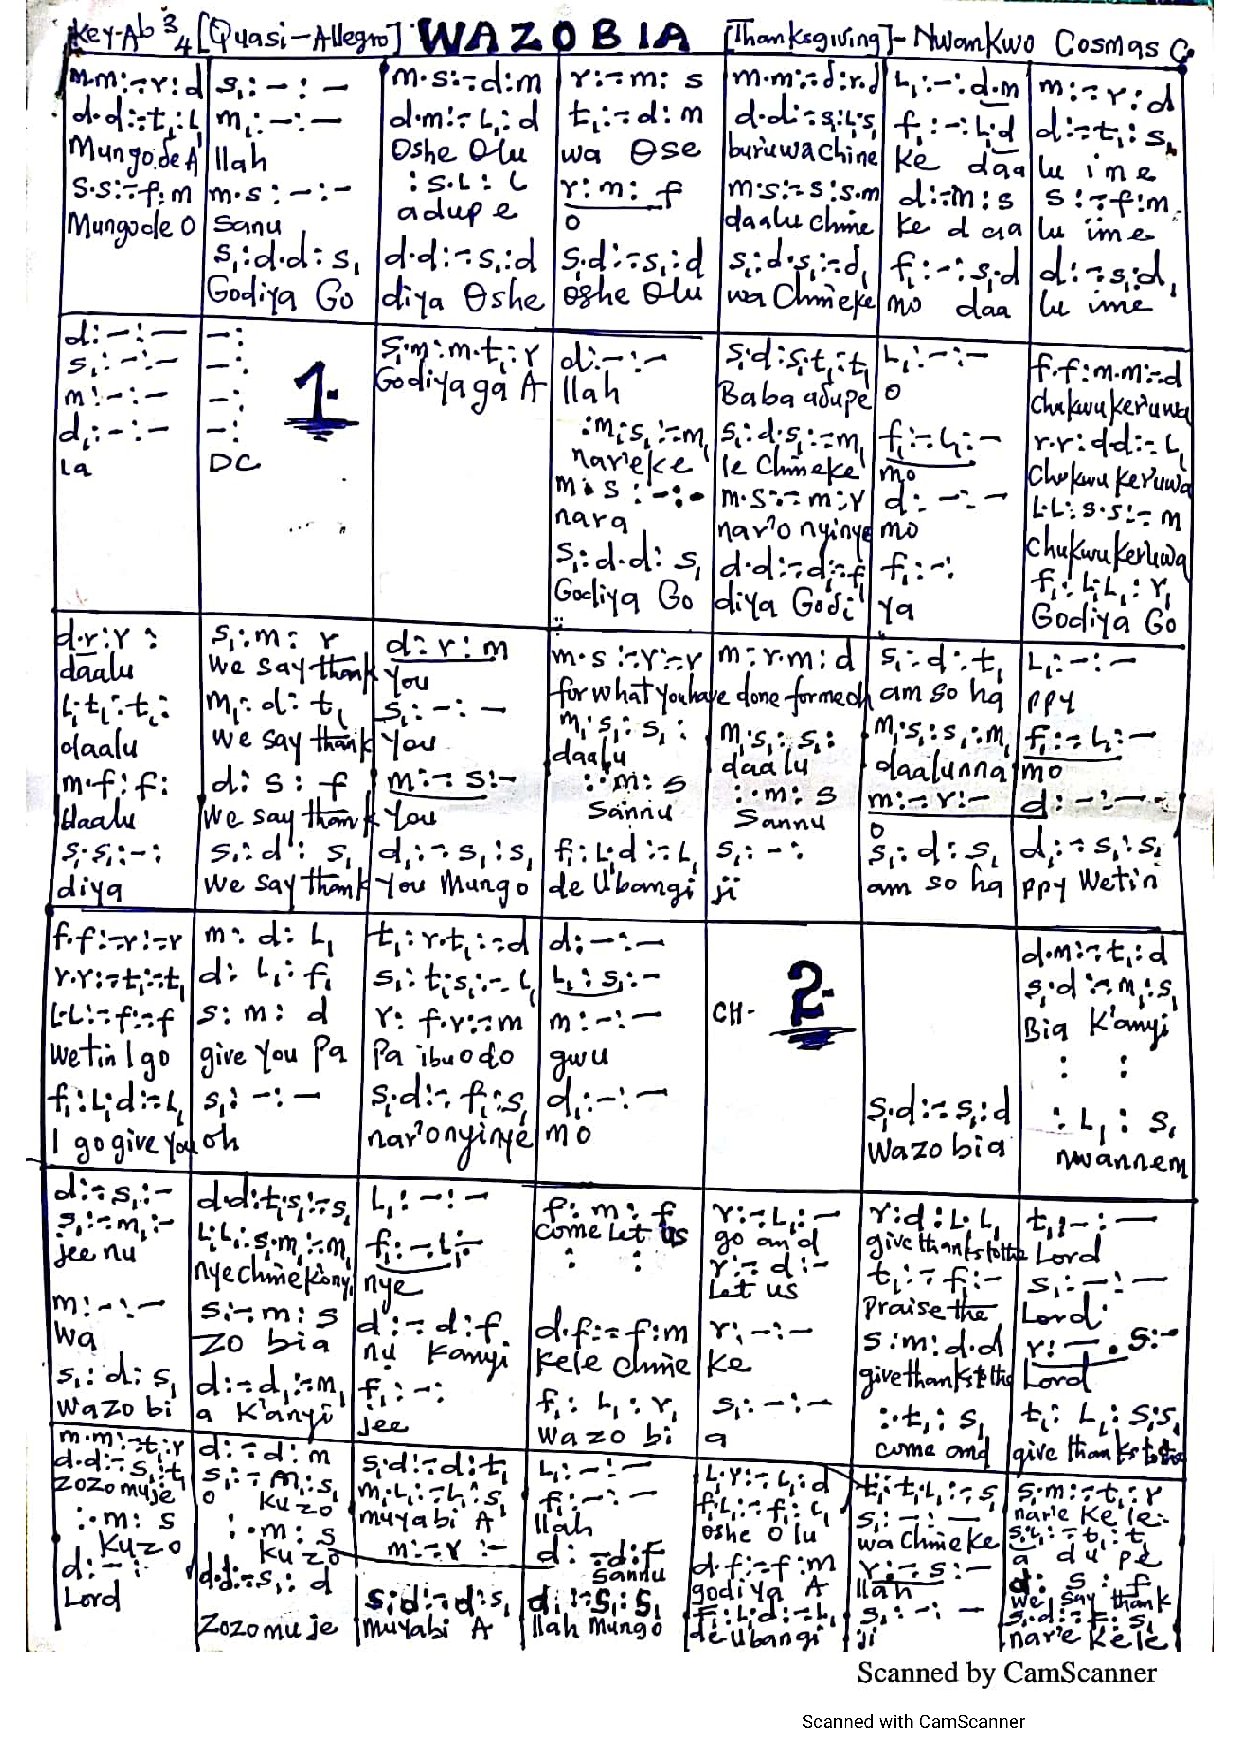 Key-Ab 3/4 [Quasi-Allegro] WAZOBIA [Thanksgiving]- Nwankwo Cosmas C.
m.m:-:r:d s,:-:- m.s:-:d:m r:-:m:s m.m:-:d:r.d L,:-:d.m m:-:r:d
d.d:-:t,:L, m,:-:- d.m:-:L,:d t,:-:d:m d.d:-:s,:L,s, f,:-:L,.d d:-:t,:s,
Mungode A' llah Oshe Olu wa Ose buruwa chine ke daa lu ime
s.s:-:f:m m.s:-:- :s.L:L r:m:f m.s:-:s:s.m d:-:m:s s:-:f:m
Mungode O Sanu adupe o daalu Chine ke daa lu ime
s,:d.d:s, d.d:-:s,:d s,.d:-:s,:d s,:d.s,:-:d, f,:-:s,.d d:-:s,:d,
Godiya Go diya Oshe oshe Olu wa Chineke mo daa lu ime
d:-:- -: s,.m:m.t,:r d:-:- s,.d:s,.t,:t, L,:-:- f.f:m.m:-:d
s,:-:- -: Godiya ga A llah Baba adupe o chukwu keruwa
m:-:- -: 1. :m,.s,:-:m, s,:d.s,:-:m, f,:-:L,:- r.r:d.d:-:L,
d,:-:- -: nar'eke le Chineke mo Chukwu keruwa
la DC m.s:-:- m.s:-:m:r d:-:- L.L:s.s:-:m
nara nar'o nyinye mo chukwu keruwa
s,:d.d:s, d.d:-:d:-:f, f,:-: f,:L,.L,:r,
Godiya Go diya Godi ya Godiya Go
d.r:r: s,:m:r d:r:m m.s:-:r:-:r m:r.m:d s,:d:t, L,:-:-
daalu We say thank You for what you have done for me ch am so ha ppy
L,.t,:t,: m,:d:t, s,:-:- m,.s,:s,: m,.s,:s,: m,.s,:s,:m, f,:-:L,:-
daalu We say thank You daalu daalu daalu nna mo
m.f:f: d:s:f m:-:s:- :m:s :m:s m:-:r:- d:-:-
daalu We say thank You Sannu Sannu o
s,.s,:-: s,:d:s, d,:-:s,:s, f,:L,.d:-:L, s,:-: s,:d:s, d,:-:s,:s,
diya We say thank You Mungo de U'bangi ji am so ha ppy Wetin
f.f:-:r:-:r m:d:L, t,:r.t,:-:d d:-:- d.m:-:t,:d
r.r:-:t,:-:t, d:L,:f, s,:t,.s,:-:L, L,:s,:- s,.d:-:m,:s,
L.L:-:f:-:f s:m:d r:f.r:-:m m:-:- CH- 2. Bia K'anyi
wetin I go give You Pa Pa ibu odo gwu : :
f,:L,.d:-:L, s,:-:- s,.d:-:f,:s, d,:-:- s,.d:-:s,:d :L,:s,
I go give You oh nar'onyinye mo Wazo bia nwannem
d:-:s,:- d.d:t,.s,:-:s, L,:-:- f:m:f r:-:L,:- r:d:L,.L, t,:-:-
s,:-:m,:- L,.L,:s,.m,:-:m, f,:-:L,:- Come Let us go and give thanks to the Lord
jee nu nye chineke'ony nye : : r:-:d:- t,:-:f,:- s,:-:-
Let us Praise the Lord
m:-:- s:-:m:s d:-:d:f d.f:-:f:m r:-:- s:m:d.d r:-.s:-
Wa Zo bia nu kanyi kele chine ke give thanks to the Lord
s,:d:s, d:-:d,:-:m, f,:-: f,:L,:r, s,:-:- :t,:s, t,:L,:s,.s,
Wazo bi a K'anyi jee wazo bi a come and give thanks to the
m.m:-:t,:r d:-:d:m s,.d:-:d:t, L,:-:- L,.r:-:L,:d t,:t,.L,:-:s, s,.m:-:t,:r
d.d:-:s,:t, s,:-:m,:s, m,.L,:-:L,:s, f,:-:- f,.L,:-:f,:L, s,:-:- nar'e Ke le
Zozo muje o Kuzo muyabi A' llah oshe O lu wa Chineke s,.L,:-:t,:t,
:m:s :m:s m:-:r:- d:-:d:f d.f:-:f:m r:-:s:- a du pe
Kuzo Kuzo Sandu godiya A llah d:s:f
We say thank
d:-: d.d:-:s,:d s,.d:-:d:s, d,:-:s,:s, f,:L,.d:-:L, s,:-:- s,.d:-:f,:s,
Lord Zozo mu je muyabi A llah Mungo de Ubangi ji nar'e Kele
Scanned by CamScanner
Scanned with CamScanner